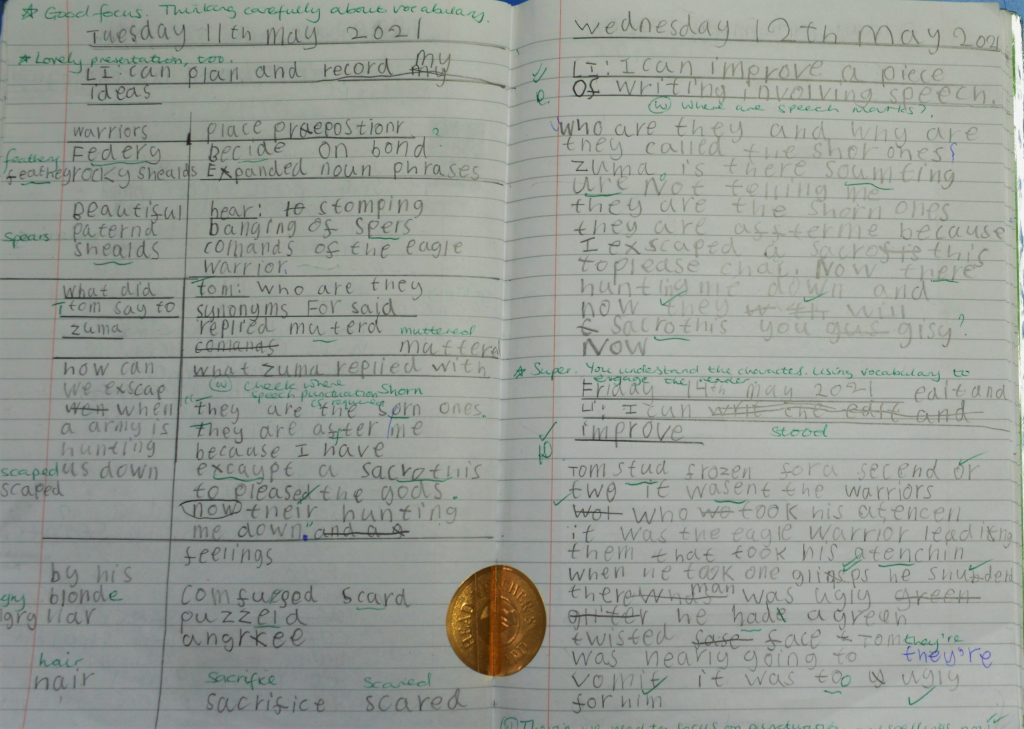 * Good focus. Thinking carefully about vocabulary.
Tuesday 11th may 2021
* Lovely presentation, too.
LI: can plan and record my my
ideas
warriors place praepostionr
Federy Decide on bond ?
feathery
featheyrocky shealds Expanded noun phrases
Beautiful hear: to stomping
paternd banging of spers
spears
shealds comands of the eagle
warrior.
what did tom: who are they
Ttom say to synonyms For said
zuma replred muterd muttered
comands mutterd
how can what zuma replied with
we exscap (W) check where
speech punctuation Shorn
won when they are the sorn ones.
a army is they are after me
hunting because I have
scaped us down excaypt a sacrothis
scaped to pleased the gods.
now their hunting
me down. and a
feelings
by his
blonde comfuzged scard
har puzzeld
angrkee
hair sacrifice scared
hair sacrifice scared
wednesday 12th may 2021
LI: I can improve a piece
of writing involving speech.
(W) where are speech marks?
who are they and why are
they called the shor ones?
zuma. is there soumting
ure not telling me
they are the shorn ones
they are affterme because
I exscaped a sacrosfis this
toplease char. Now there
hunting me down and
now they will
sacrothis you gus gisy?
Now
* Super. You understand the character. Using vocabulary to
engage the reader
Friday 14th may 2021 eait and
LI: I can writ the edit and
improve stood
Tom stud frozen for a secend or
two it wasent the warriors
Wot who wo took his atencen
it was the eagle warrior leading
them that took his atenchin
when he took one glimsps he shudderd
there whas man was ugly green
gliter he had a green
twisted fase face Tom they're
was nearly going to they're
vomit it was too ugly
for him